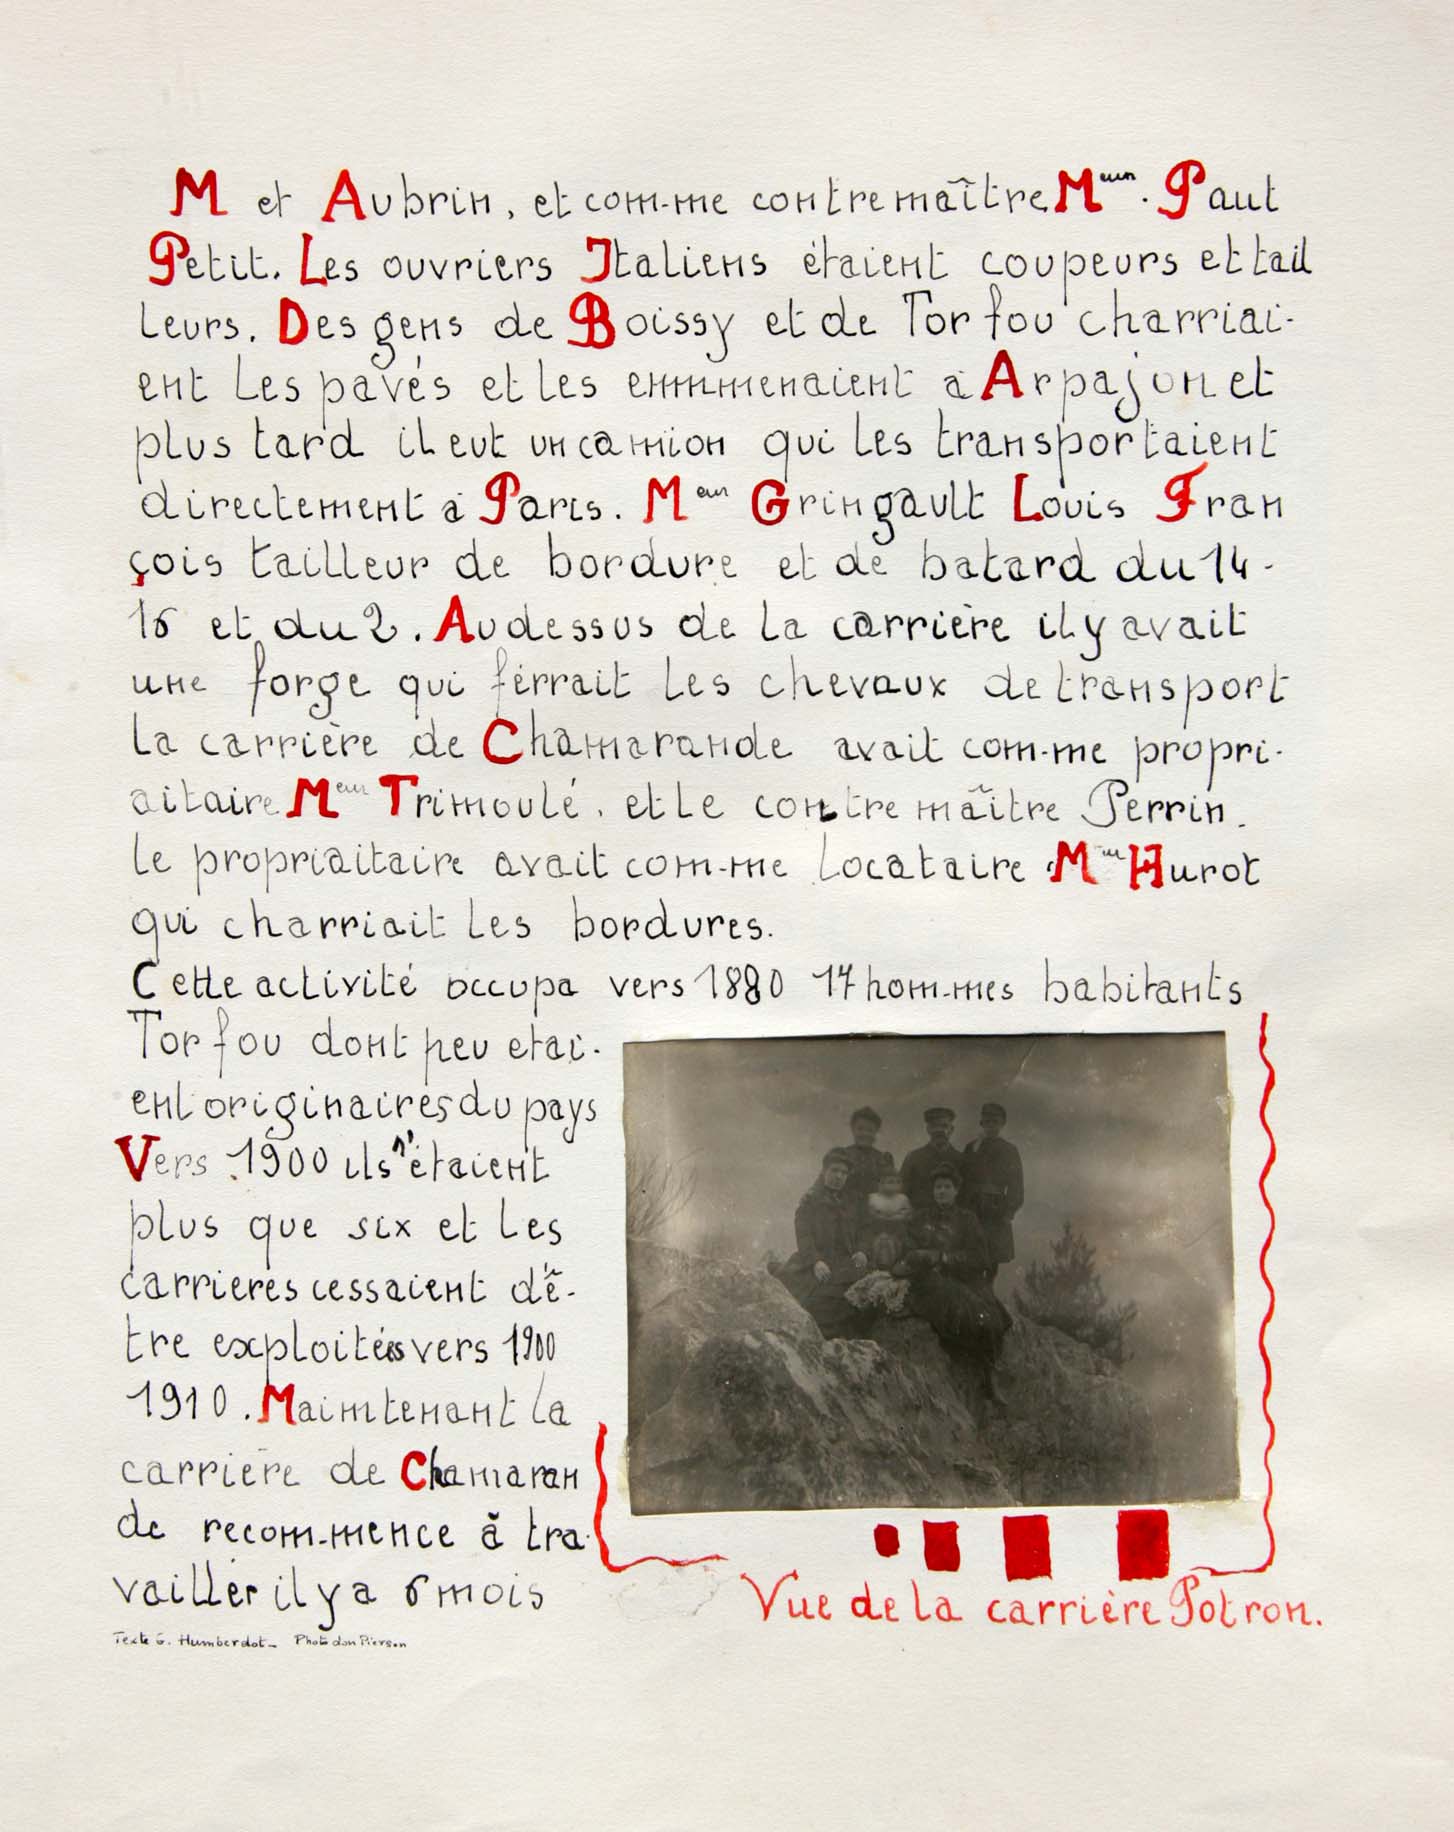 M et Aubrin, et com-me contremaître Meur. Paut
Petit. Les ouvriers Italiens étaient coupeurs et tail
leurs. Des gens de Boissy et de Torfou charriai-
ent les pavés et les emmmenaient à Arpajon et
plus tard il eut un camion qui les transportaient
directement à Paris. Meur Gringault Louis Fran
çois tailleur de bordure et de batard du 14-
16 et du 2. Audessus de la carrière il y avait
une forge qui férrait les chevaux de transport
la carrière de Chamarande avait com-me propri-
aitaire Meur Trimoulé, et le contre maître Perrin.
le propriaitaire avait com-me locataire Meur Hurot
qui charriait les bordures.
Cette activité occupa vers 1880 17 hom-mes habitants
Torfou dont peu etai-
ent originaires du pays
Vers 1900 ils n'étaient
plus que six et les
carrieres cessaient d'ê-
tre exploitées vers 1900
1910. Maintenant la
carrière de Chamaran
de recom-mence à tra-
vaillér il y a 6 mois
Texte G. Humberdot_ Photo don Pierson
Vue de la carrière Potron.